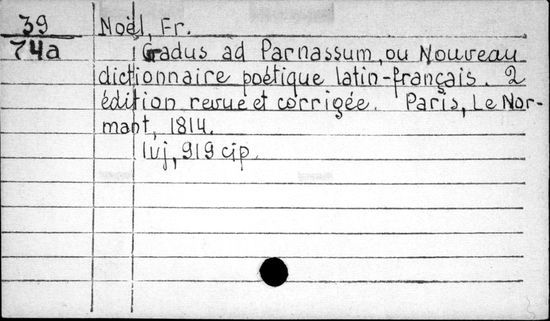 39 Noël, Fr.
74a Gradus ad Parnassum, ou Nouveau
dictionnaire poétique latin-français. 2
édition revue et corrigée. Paris, Le Nor-
mant, 1814.
lvj, 919 cip.